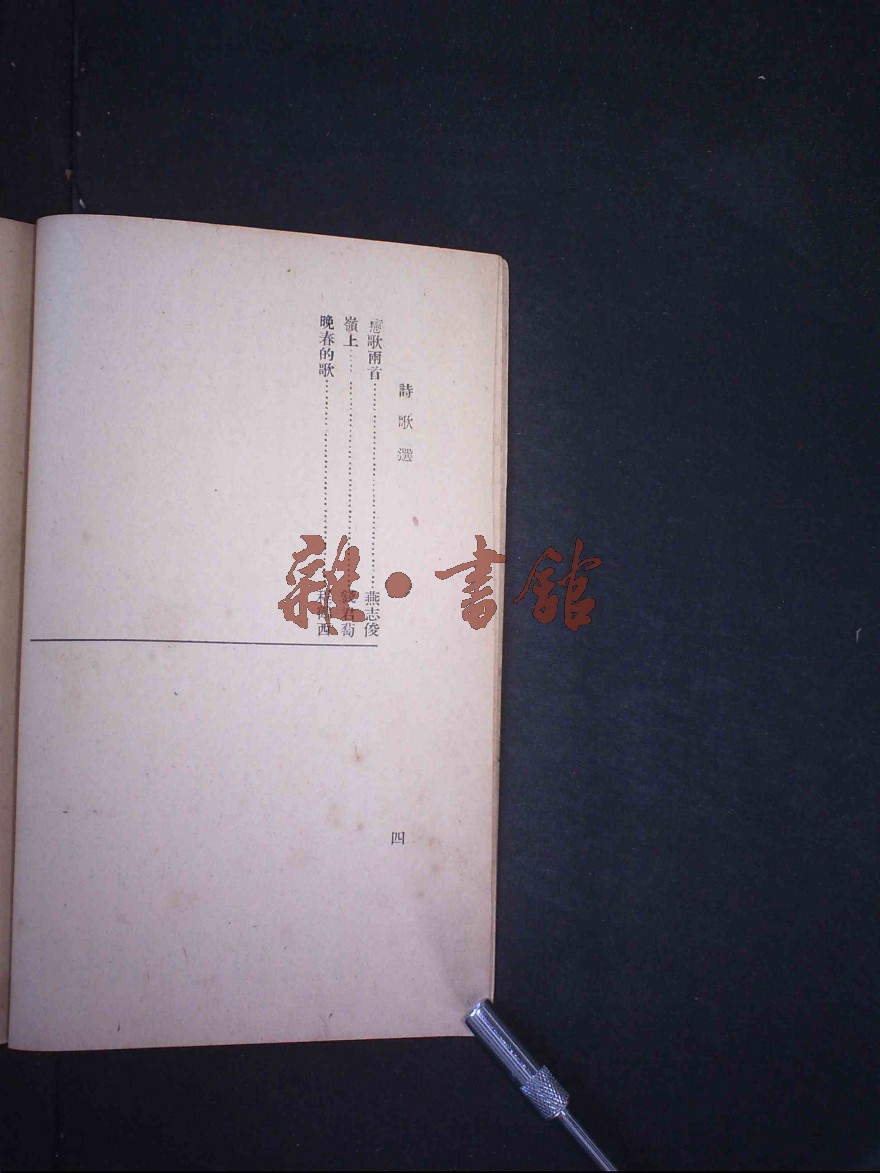 詩歌選
戀歌兩首⋯⋯⋯⋯⋯⋯燕志俊
嶺上⋯⋯⋯⋯⋯⋯錢君匋
晚春的歌⋯⋯⋯⋯⋯⋯程 西
四
雜·書館